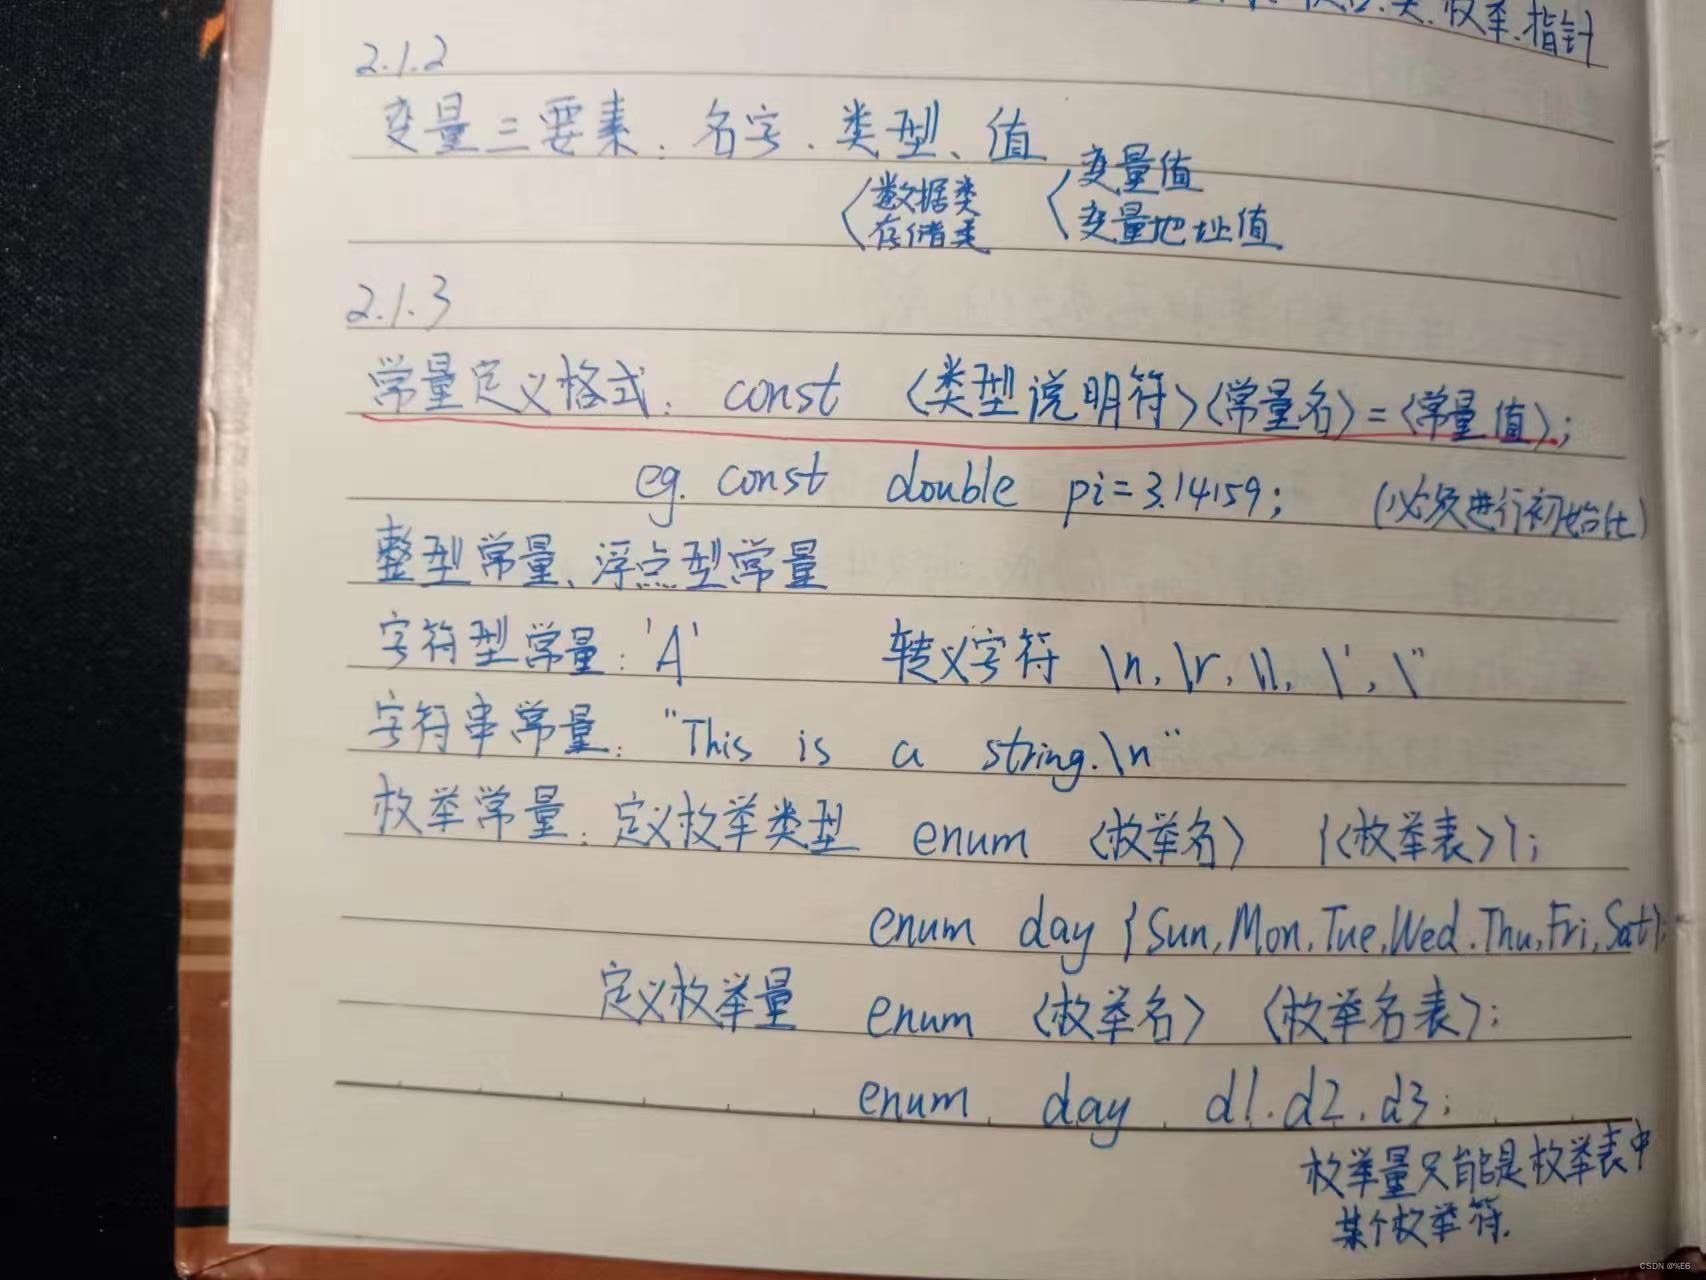 类、枚举、指针
2.1.2
变量三要素：名字、类型、值
数据类 变量值
存储类 变量地址值
2.1.3
常量定义格式：const 〈类型说明符〉〈常量名〉=〈常量值〉;
eg. const double pi=3.14159; (必须进行初始化)
整型常量、浮点型常量
字符型常量：'A' 转义字符 \n, \r, \\, \', \"
字符串常量："This is a string.\n"
枚举常量：定义枚举类型 enum 〈枚举名〉 {〈枚举表〉};
enum day {Sun,Mon,Tue,Wed,Thu,Fri,Sat};
定义枚举量 enum 〈枚举名〉 〈枚举名表〉;
enum day d1,d2,d3;
枚举量只能是枚举表中
某个枚举符.
CSDN @%E6